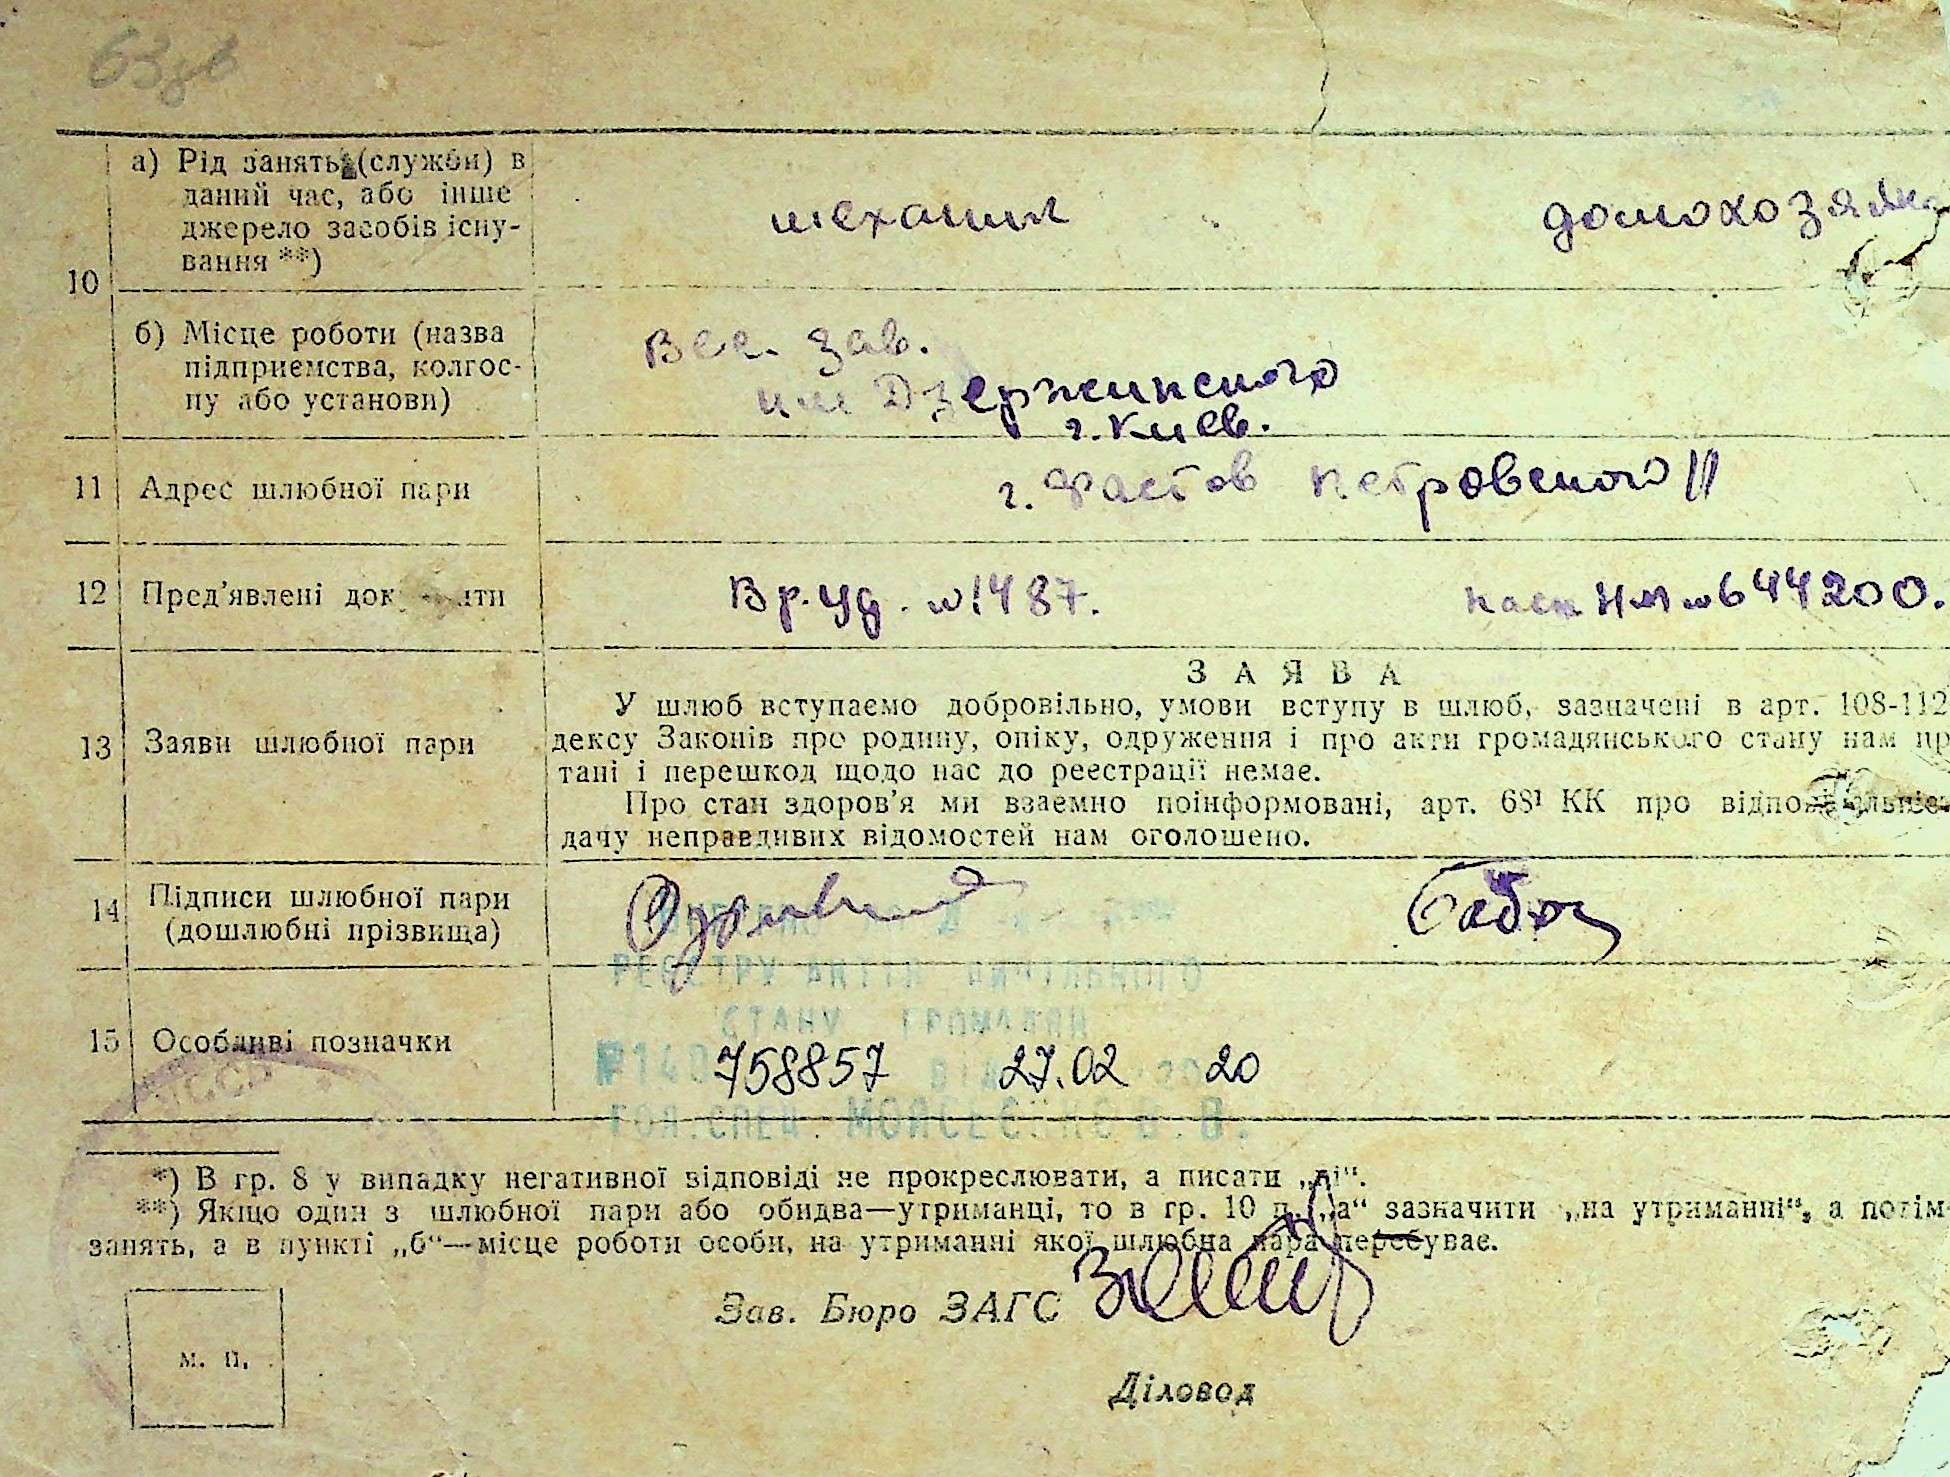 63зв
а) Рід занять (служби) в
даний час, або інше
джерело засобів існу-
вання **)
10
механик
домохозяйка
б) Місце роботи (назва
підприємства, колгос-
пу або установи)
Вес. зав.
им Дзержинского
г. Киев.
11 Адрес шлюбної пари
г. Фастов Петровского 11
12 Пред’явлені док ти
Вр. уд. №1487.
пасп НМ №644200.
13 Заяви шлюбної пари
ЗАЯВА
У шлюб вступаємо добровільно, умови вступу в шлюб, зазначені в арт. 108-112
дексу Законів про родину, опіку, одруження і про акти громадянського стану нам пр
тані і перешкод щодо нас до реєстрації немає.
Про стан здоров’я ми взаємно поінформовані, арт. 68¹ КК про відповідальніс
дачу неправдивих відомостей нам оголошено.
14 Підписи шлюбної пари
(дошлюбні прізвища)
Бабо
РЕЄСТРУ АКТІВ ЦИВІЛЬНОГО
СТАНУ ГРОМАДЯН
15 Особливі позначки
758857 ВІД 27.02 20
ГОЛ.СПЕЦ. МОЙСЕЄНКО В.В.
*) В гр. 8 у випадку негативної відповіді не прокреслювати, а писати „ні“.
**) Якщо один з шлюбної пари або обидва—утриманці, то в гр. 10 п. „а“ зазначити „на утриманні“, а потім
занять, а в пункті „б“—місце роботи особи, на утриманні якої шлюбна пара перебуває.
Зав. Бюро ЗАГС
м. п.
Діловод